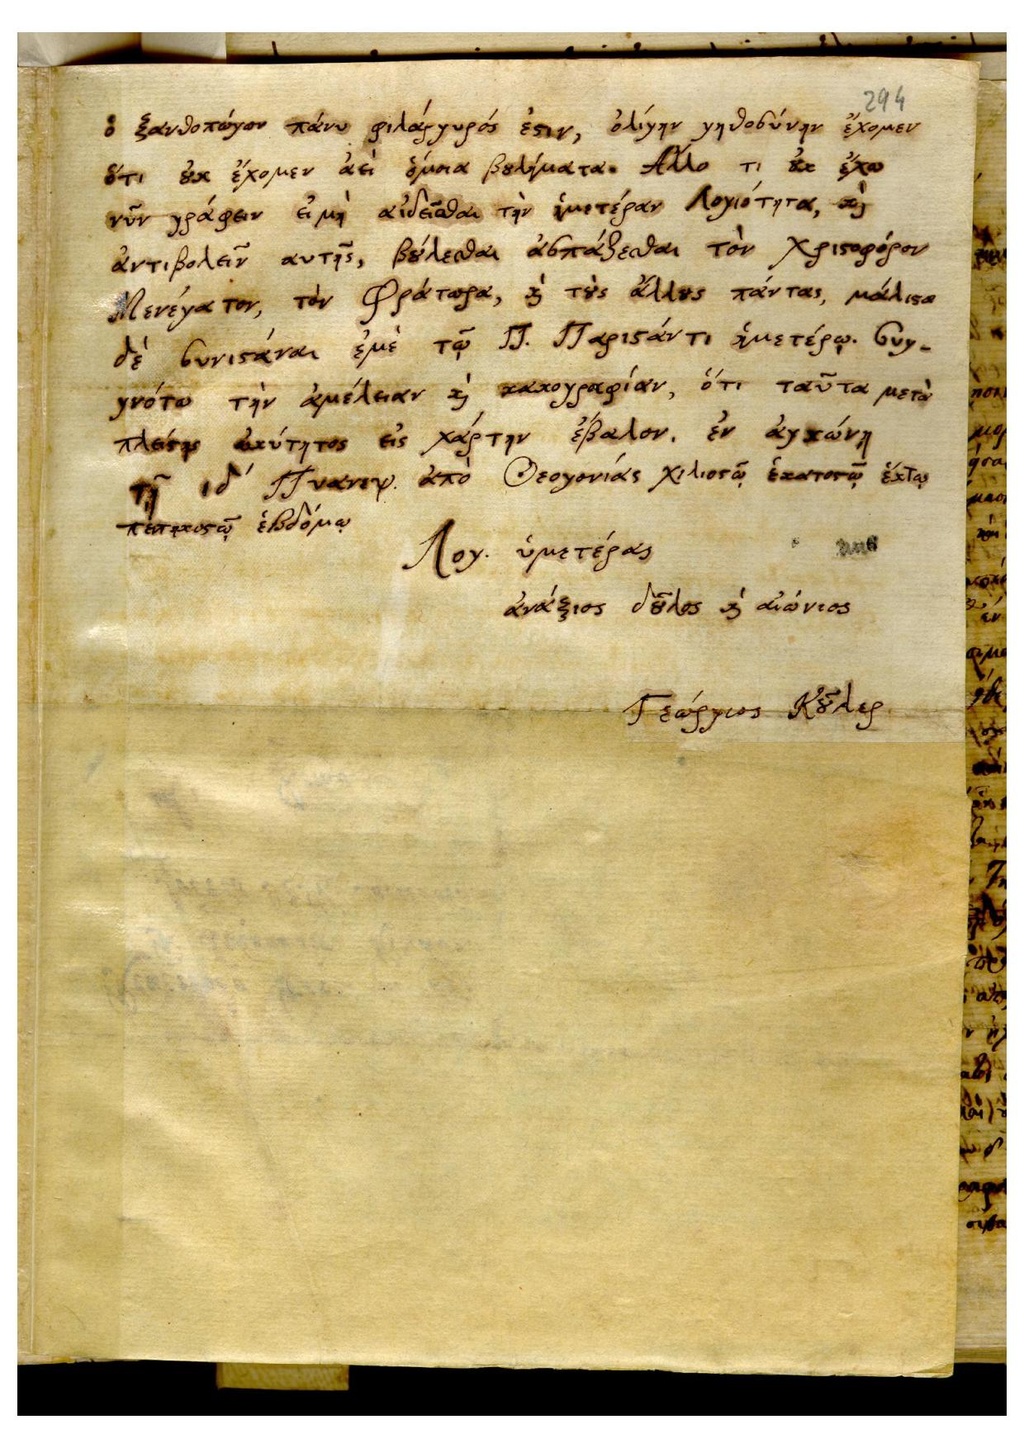 294
ὁ ξανθοπώγον πάνυ φιλάργυρός ἐϛιν, ὀλίγην γηθοσύνην ἔχομεν
ὅτι ȣ̓κ ἔχομεν ἀεὶ ὅμοια βȣλήματα. Ἀλλο τι ȣ̓κ ἔχω
νῦν γράφειν εἰ μὴ αἰδεῖσθαι τὴν ἡμετέραν Λογιότητα, ϗ
ἀντιβολεῖν αυτῆς, βȣ́λεσθαι ἀσπάζεσθαι τὸν Χριϛοφόρον
Μενέγατον, τὸν Φράτωρα, ϗ τȣ̀ς ἄλλȣς πάντας, μάλιϛα
δὲ συνιϛάναι ἐμὲ τῷ Π. Παριϛάντι ἡμετέρῳ. Συγ-
γνότω τὴν ἀμέλειαν ϗ κακογραφίαν, ὅτι ταῦτα μετὰ
πλείϛης ὠκύτητος εἰς χάρτην ἔβαλον. ἐν ἀγκώνῃ
τῇ ιδ´ Πυανεψ. ἀπὸ Θεογονίας χιλιοϛῷ ἑκατοϛῷ ἑκτῳ
πεντηκοϛῷ ἑβδόμῳ
Λογ. ὑμετέρας
ἀνάξιος δȣ͂λος ϗ αἰώνιος
Γεώργιος Κȣ͂λερ